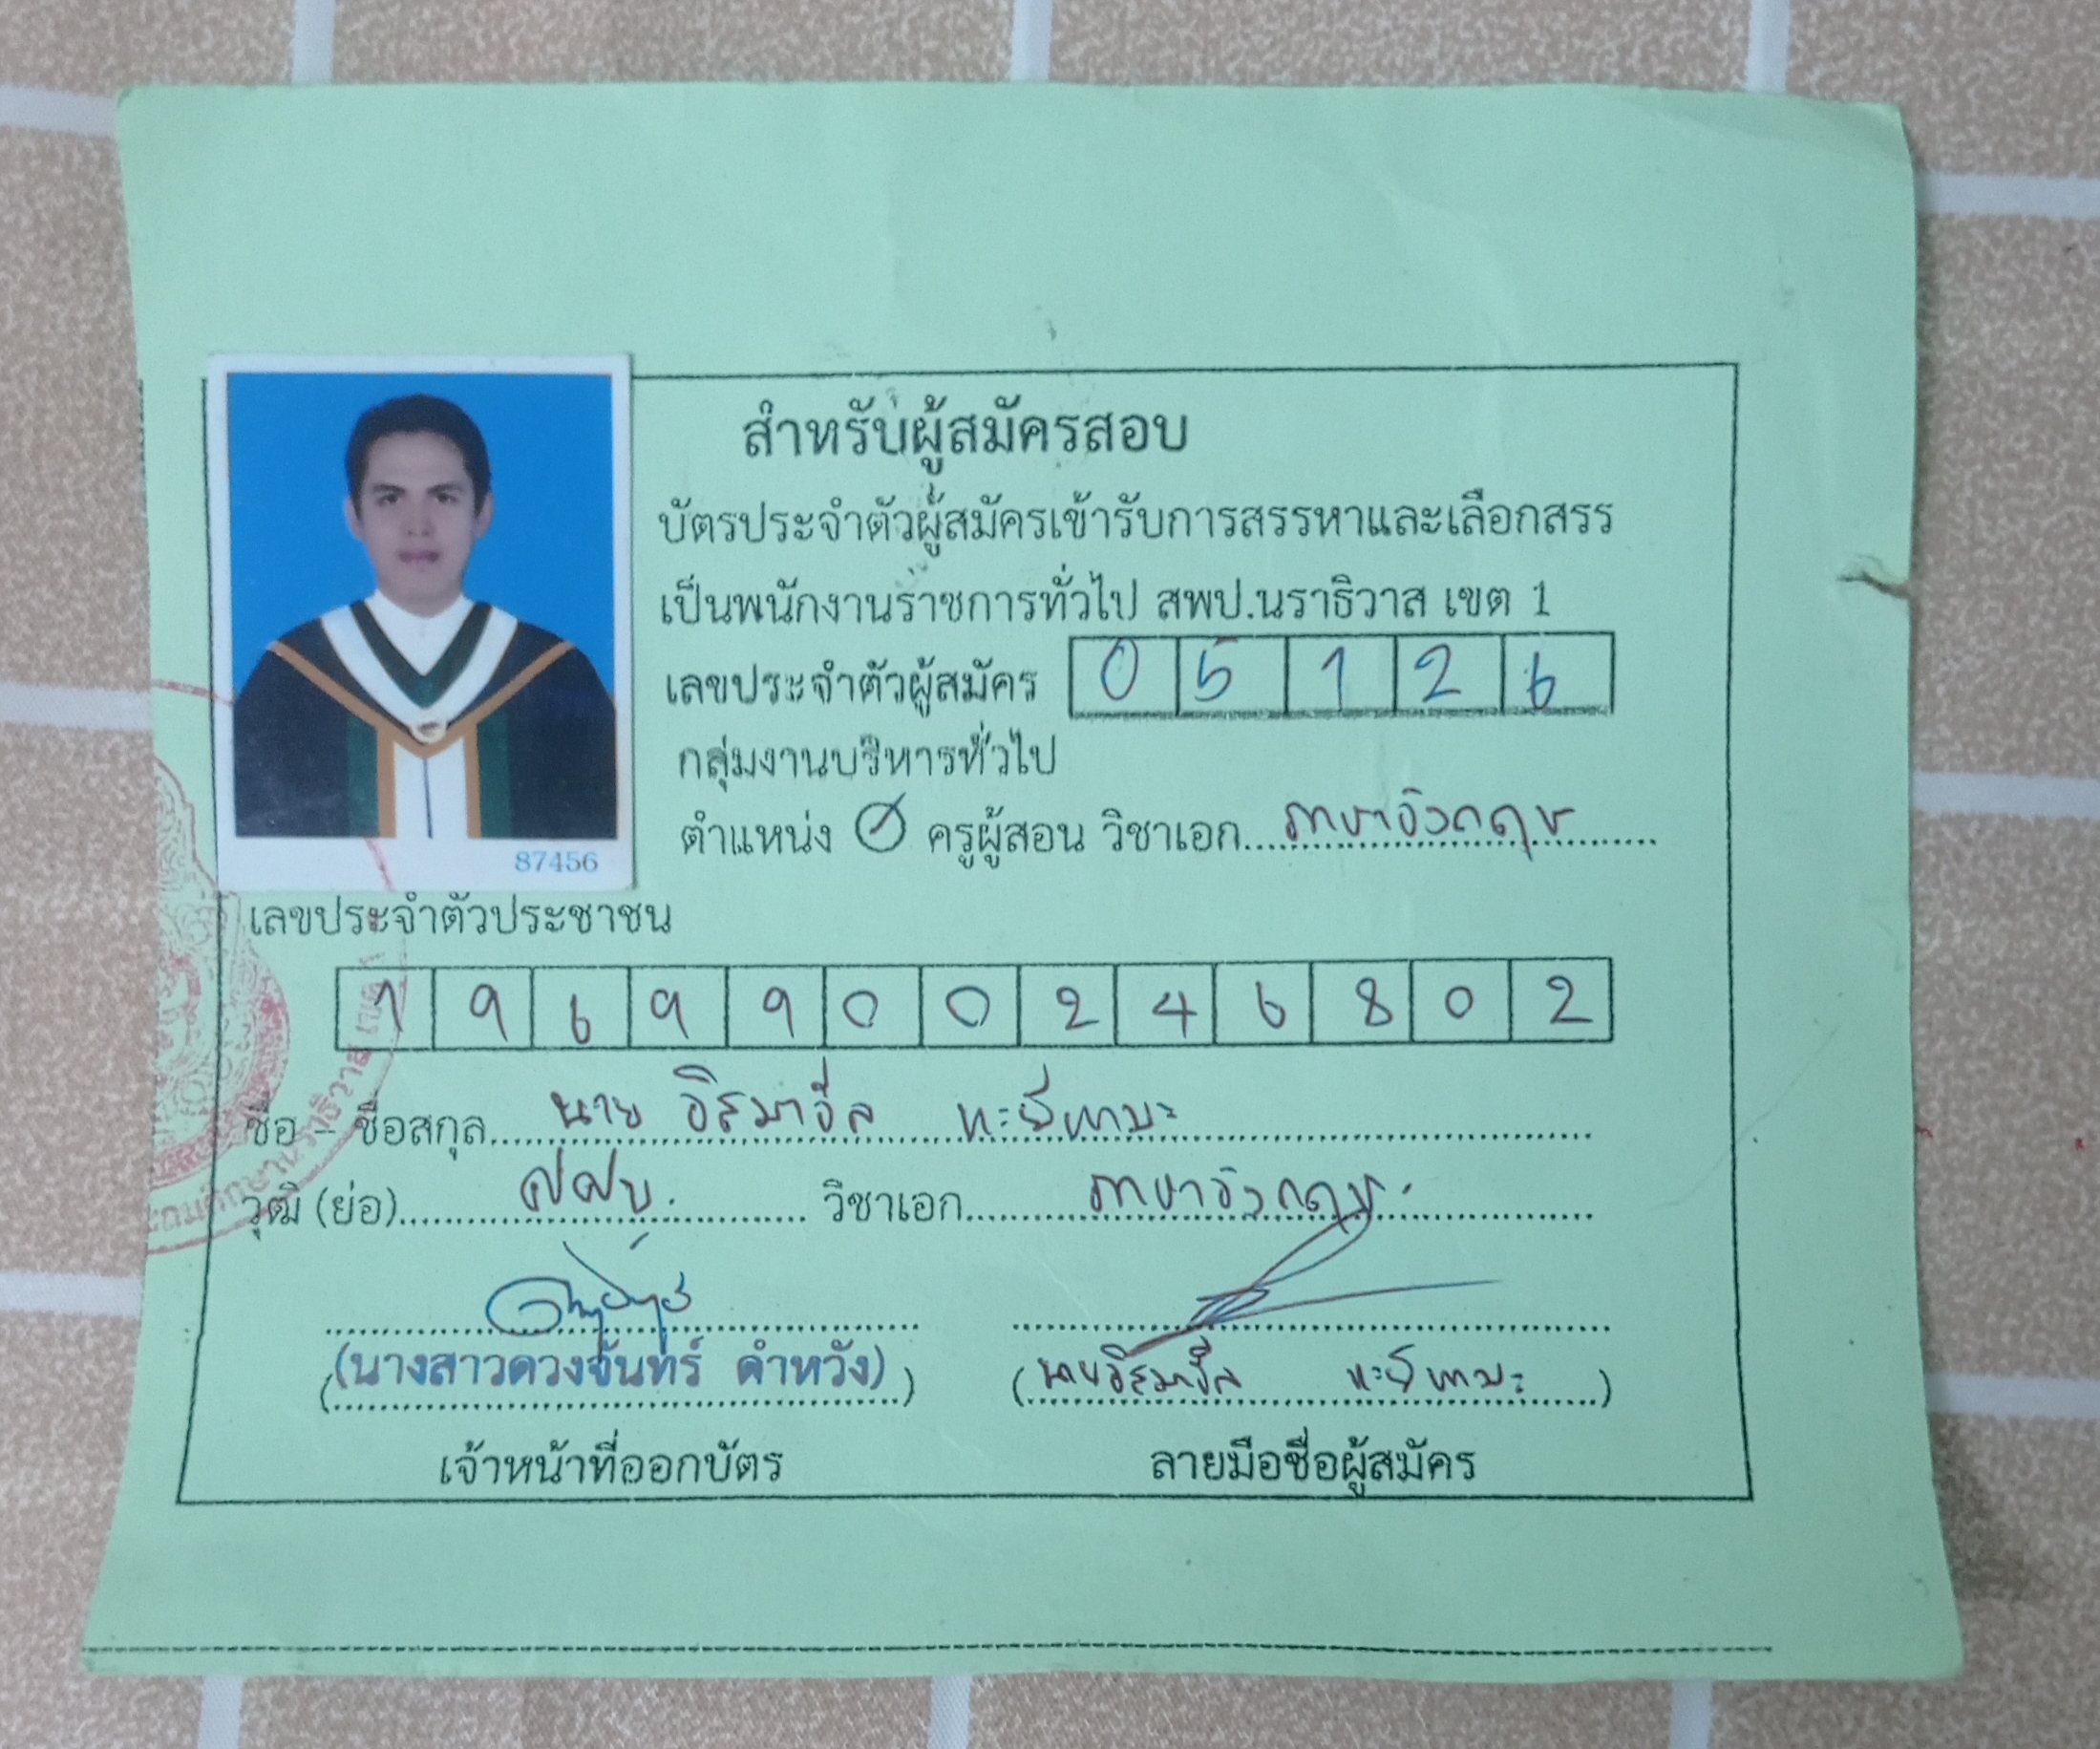 สำหรับผู้สมัครสอบ
บัตรประจำตัวผู้สมัครเข้ารับการสรรหาและเลือกสรร
เป็นพนักงานราชการทั่วไป สพป.นราธิวาส เขต 1
เลขประจำตัวผู้สมัคร 0 5 1 2 6
กลุ่มงานบริหารทั่วไป
ตำแหน่ง ครูผู้สอน วิชาเอก ภาษาอังกฤษ
87456
เลขประจำตัวประชาชน
1 9 6 9 9 0 0 2 4 6 8 0 2
ชื่อ - ชื่อสกุล นาย อิสมาอีล
วุฒิ (ย่อ) ศศบ. วิชาเอก ภาษาอังกฤษ
(นางสาวดวงจันทร์ ดำหวัง) (นายอิสมาอีล )
เจ้าหน้าที่ออกบัตร ลายมือชื่อผู้สมัคร